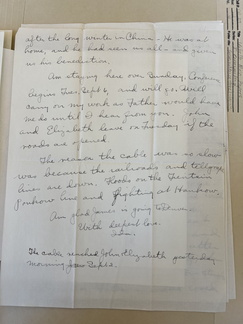 after the long winter in China - He was at
home, and he had seen us all - and given
us his benediction.
Am staying here over Sunday. Conference
begins Tues. Sept 6, and will go. Will
carry on my work as Father would have
me do
and Elizabeth leave on Tuesday if the
roads are opened
The reason the cable was so slow
was because the railroads and telegraph
lines are down. Floods on the Tientsin
line and fighting at Hankow.
Am glad is going to
With deepest love.
The cable reached John & Elizabeth yesterday
morning Sept 2.